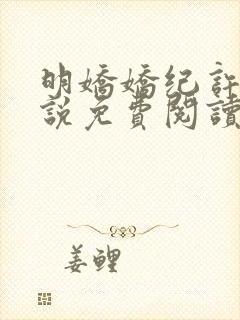 明嬌嬌纪許
說免費閱讀
姜鯉